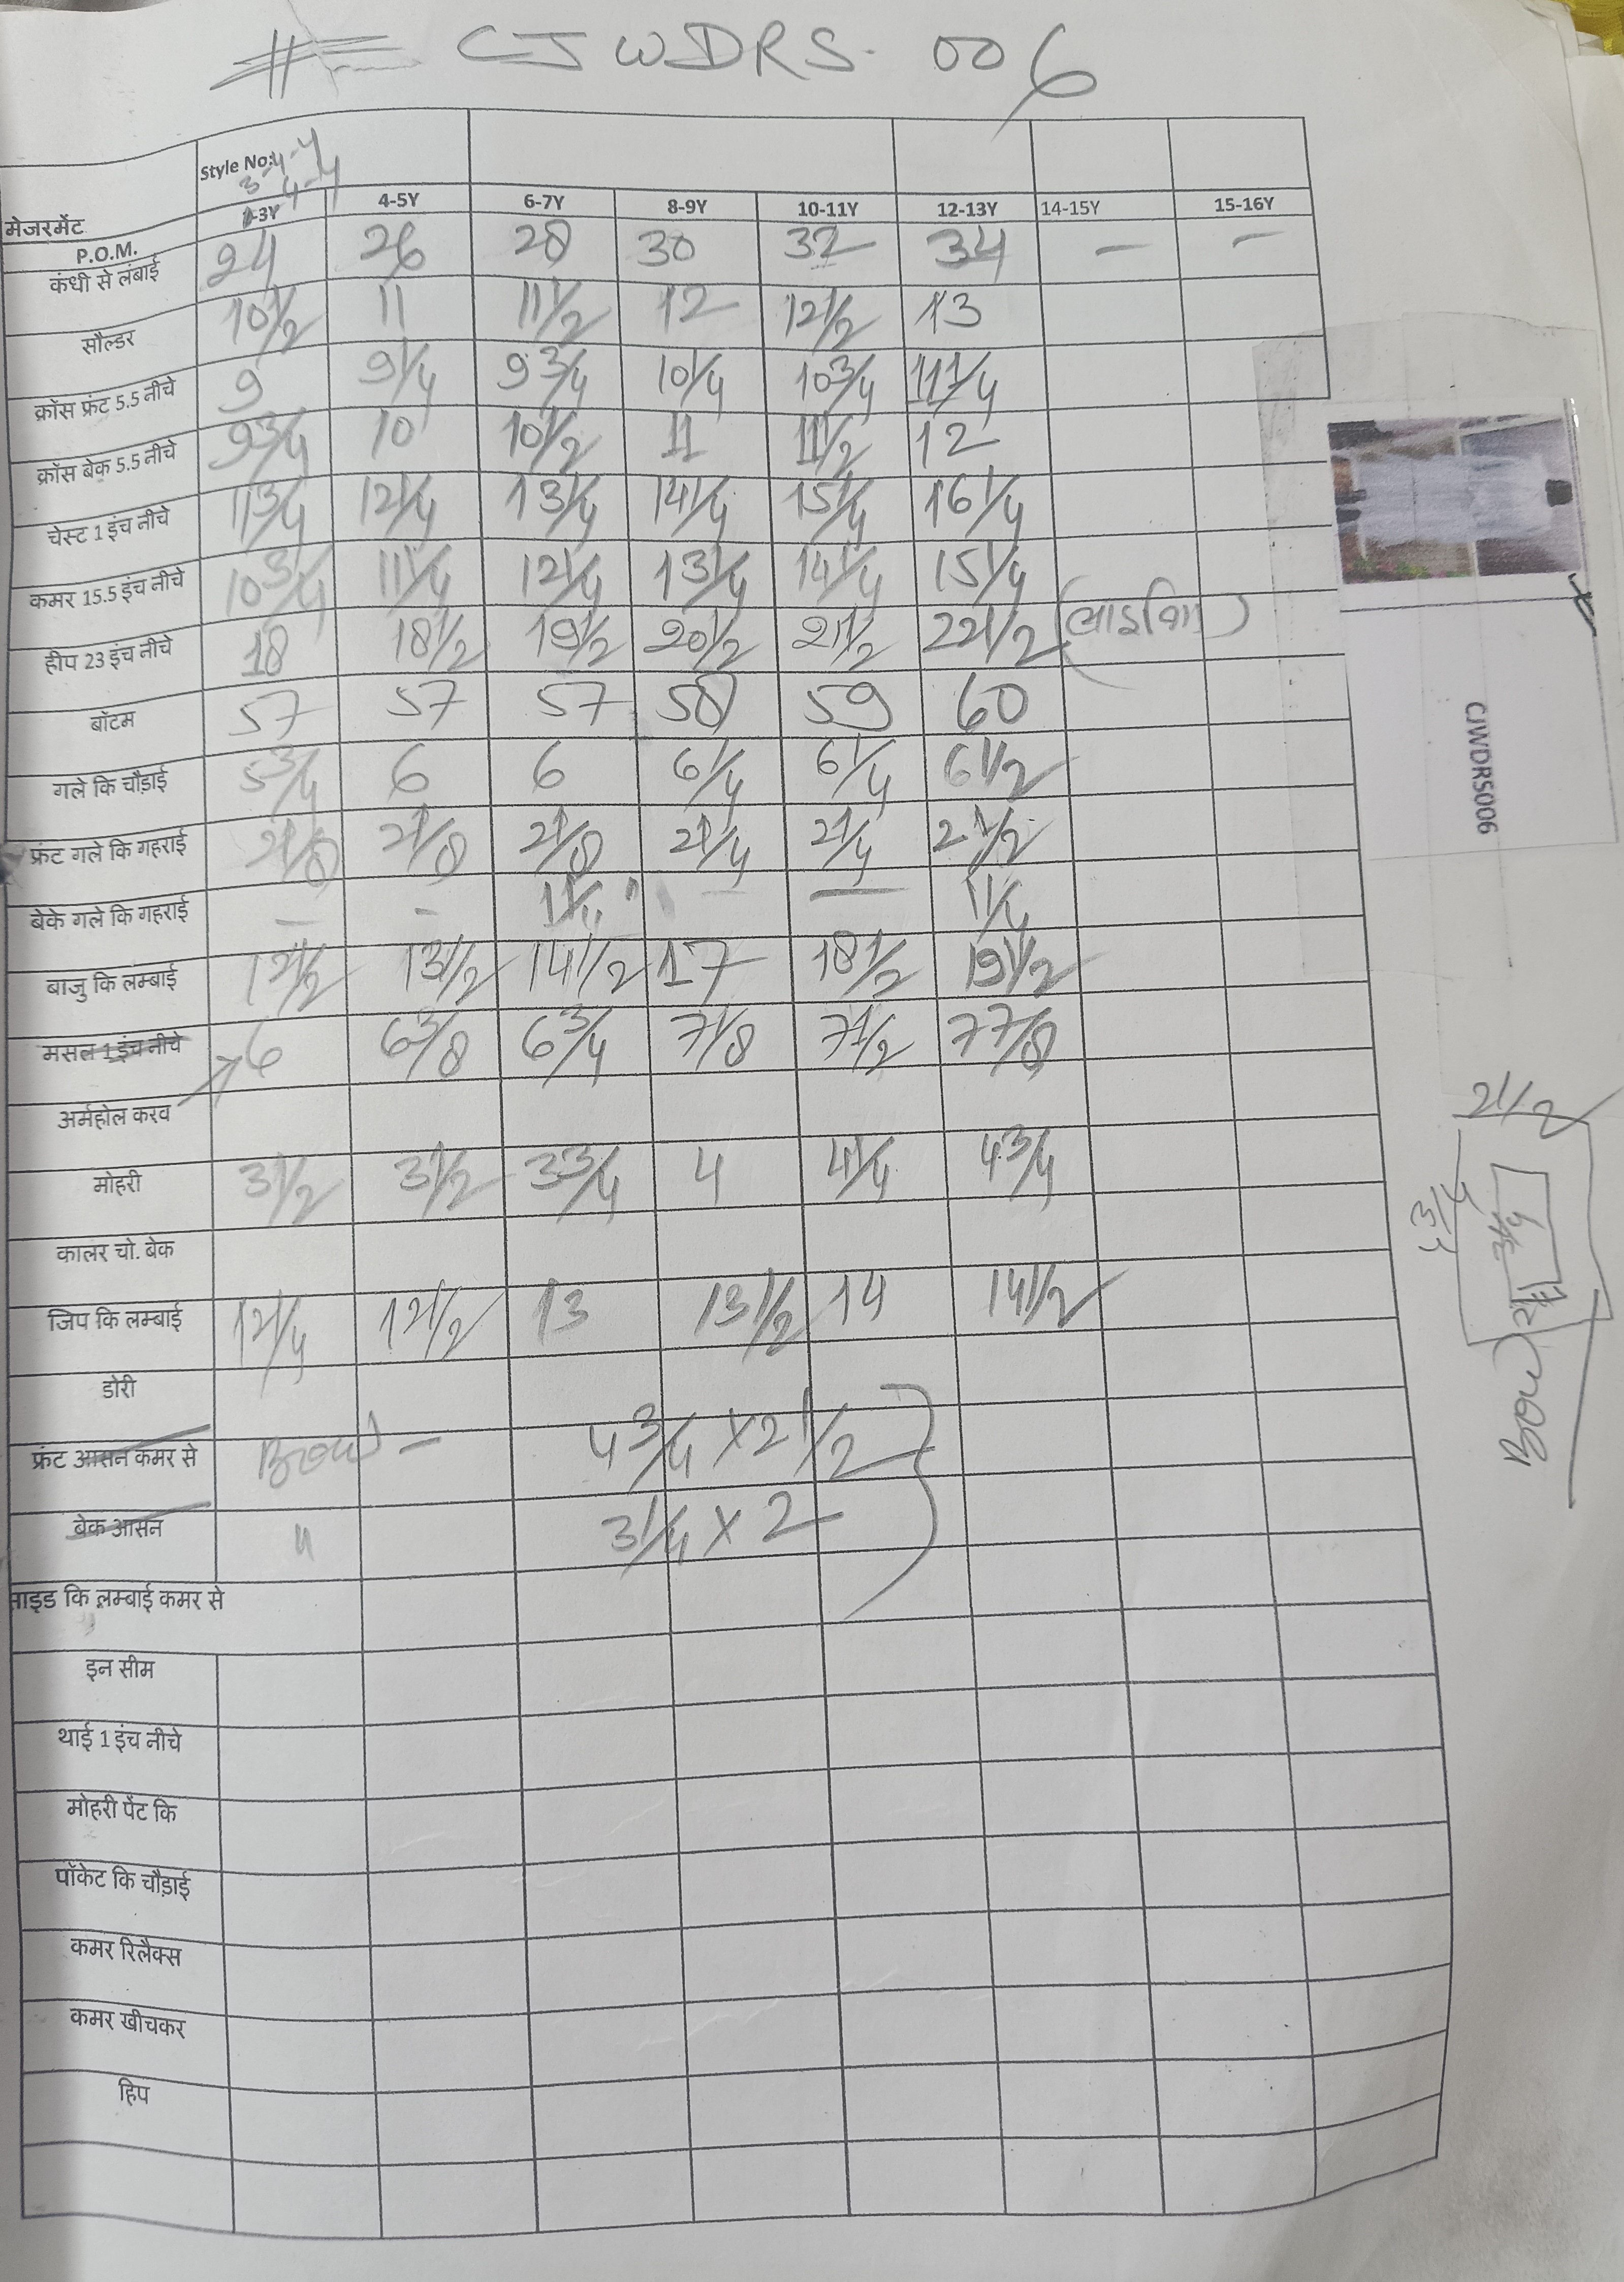 # CJWDRS-006
Style No:
3-4-Y
4-4
मेजरमेंट P.O.M. 1-3Y 4-5Y 6-7Y 8-9Y 10-11Y 12-13Y 14-15Y 15-16Y
कंधी से लंबाई 24 26 28 30 32 34 - -
सौल्डर 10 1/2 11 11 1/2 12 12 1/2 13
क्रॉस फ्रंट 5.5 नीचे 9 9 1/4 9 3/4 10 1/4 10 3/4 11 1/4
क्रॉस बेक 5.5 नीचे 9 3/4 10 10 1/2 11 11 1/2 12
चेस्ट 1 इंच नीचे 11 3/4 12 1/4 13 1/4 14 1/4 15 1/4 16 1/4
कमर 15.5 इंच नीचे 10 3/4 11 1/4 12 1/4 13 1/4 14 1/4 15 1/4
हीप 23 इंच नीचे 18 18 1/2 19 1/2 20 1/2 21 1/2 22 1/2
बॉटम 57 57 57 58 59 60
गले कि चौड़ाई 5 3/4 6 6 6 1/4 6 1/4 6 1/2
फ्रंट गले कि गहराई 2 1/8 2 1/8 2 1/8 2 1/4 2 1/4 2 1/2
बेके गले कि गहराई - - 1 1/4" - - 1 1/4
बाजु कि लम्बाई 12 1/2 13 1/2 14 1/2 17 18 1/2 19 1/2
मसल 1 इंच नीचे 6 6 3/8 6 3/4 7 1/8 7 1/2 7 7/8
अर्महोल करव
मोहरी 3 1/2 3 1/2 3 3/4 4 4 1/4 4 3/4
कालर चो. बेक
जिप कि लम्बाई 12 1/4 12 1/2 13 13 1/2 14 14 1/2
डोरी
फ्रंट आसन कमर से Bow - 4 3/4 X 2 1/2
बेक आसन " 3 1/4 X 2
साइड कि लम्बाई कमर से
इन सीम
थाई 1 इंच नीचे
मोहरी पेंट कि
पॉकेट कि चौड़ाई
कमर रिलैक्स
कमर खीचकर
हिप
CJWDRS006
2 1/2
4 3/4
3 1/4
2
Bow